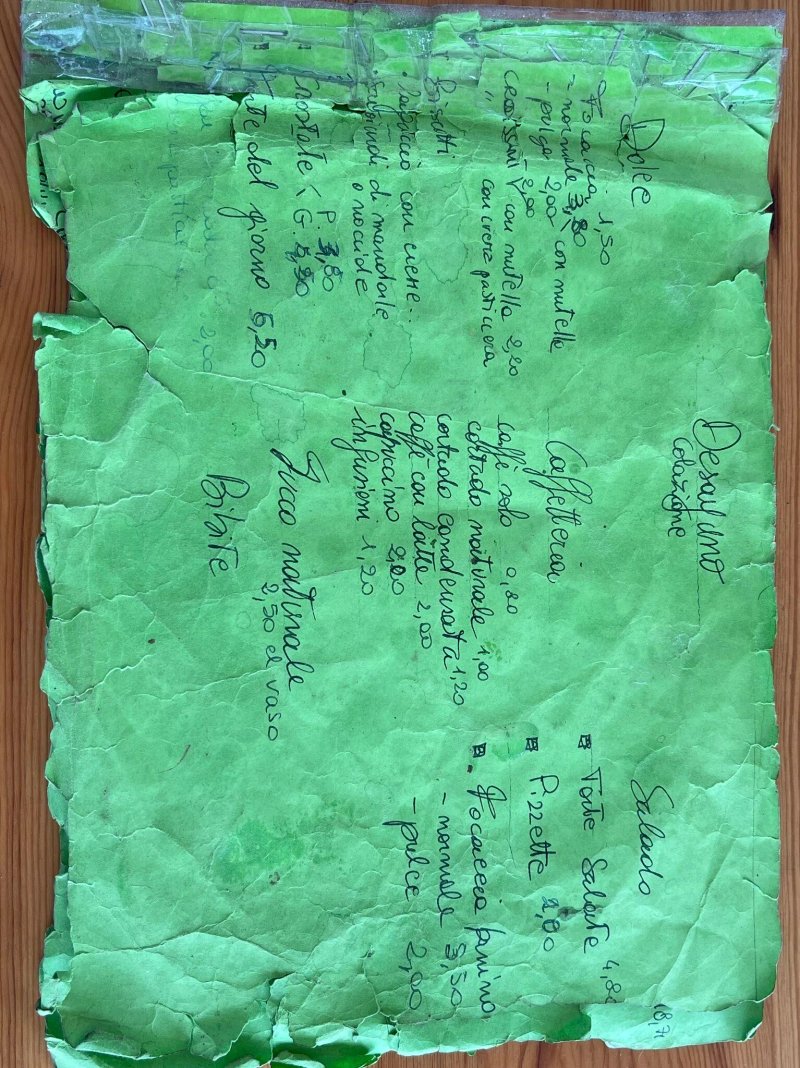 Desayuno
colazione
Dolce
Focaccia 1,50
- normale 3,80
- pulga 2,00 con nutella
croissant 2,00 con nutella 2,20
" con crema pasticcera
Biscotti
o nocciole
Crostate < P. 3,80
G. 5,50
del giorno 5,50
Caffetteria
caffè solo 0,80
cortado naturale 1,00
cortado condensata 1,20
caffè con latte 2,00
capuccino 2,00
infusioni 1,20
Succo naturale
2,50 el vaso
Bibite
Salado
Torte Salate 4,80
Pizzette 2,00
Focaccia panino
- normale 3,50
- pulce 2,00